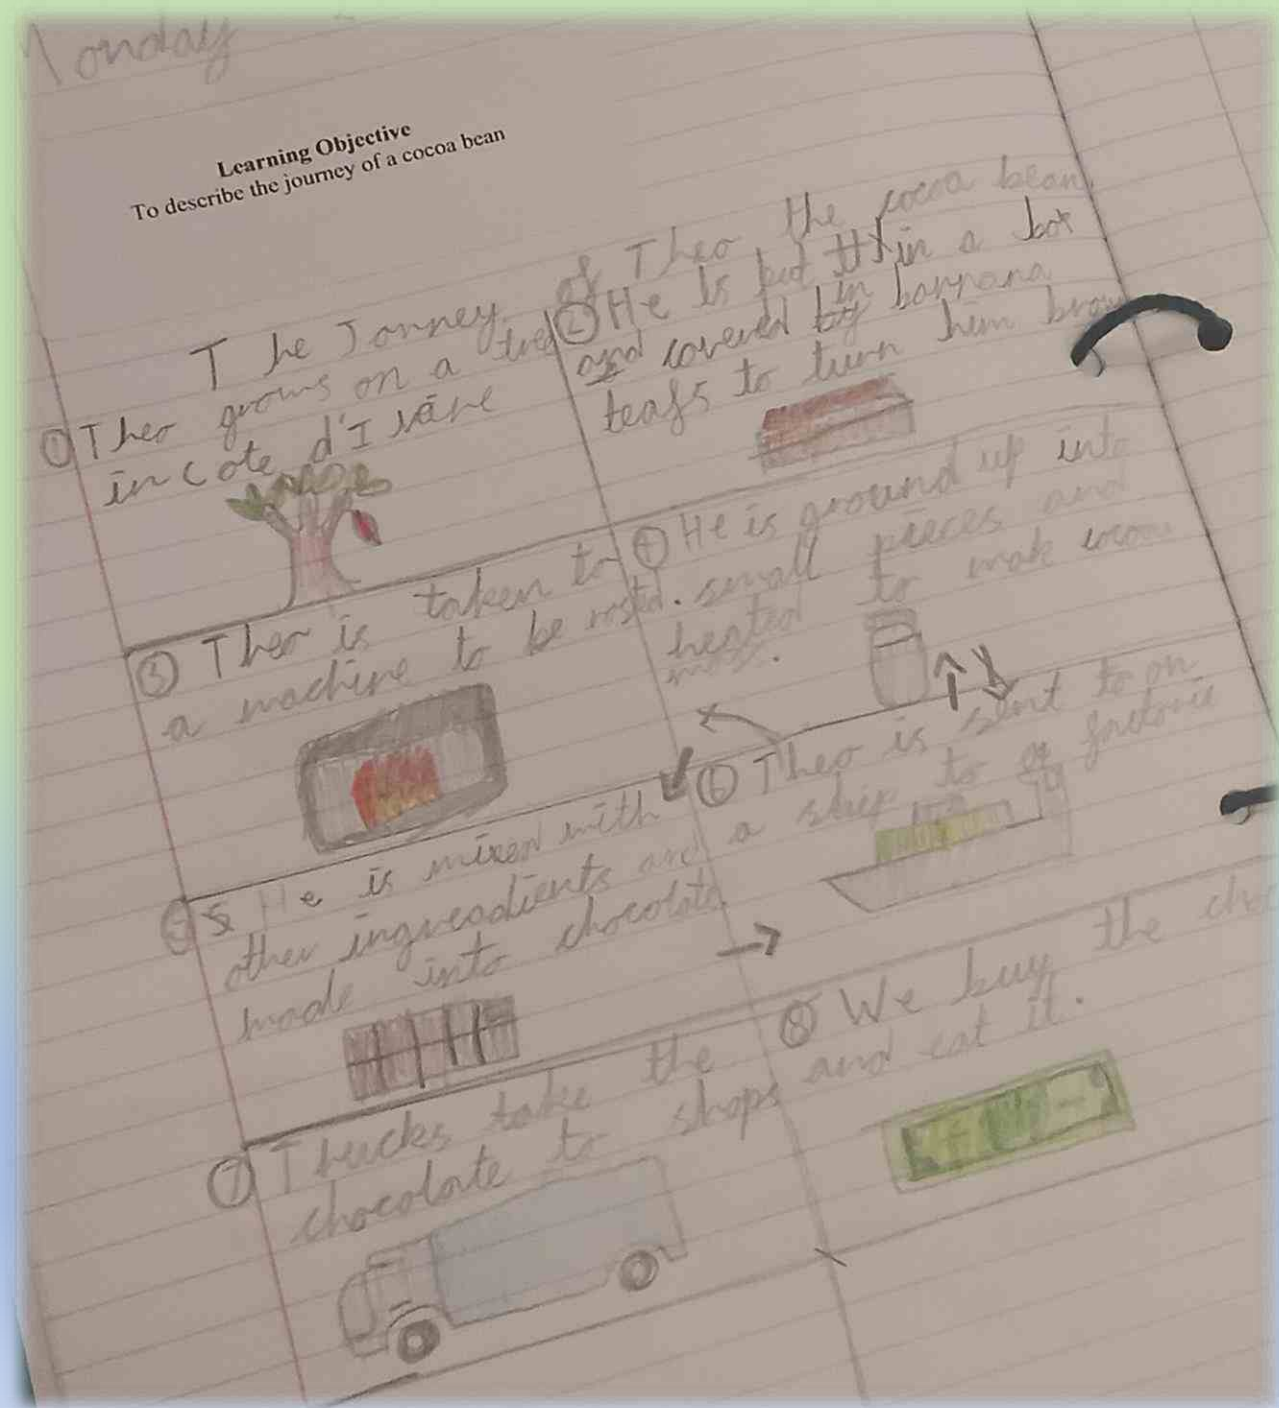 Monday
Learning Objective
To describe the journey of a cocoa bean
The Jonney of Theo the cocoa bean.
① Theo grows on a tree
in Cote d'I
② He is put in a box
and covered in bannana
leafs to turn him brown
③ Theo is taken to
a machine to be rosted.
④ He is ground up into
small pieces and
heated to make cocoa
mass.
⑤ He is mixed with
other ingreadients and
made into chocolate.
⑥ Theo is sent to on
a ship to a factorie
⑦ Trucks take the
chocolate to shops
⑧ We buy the choc
and eat it.